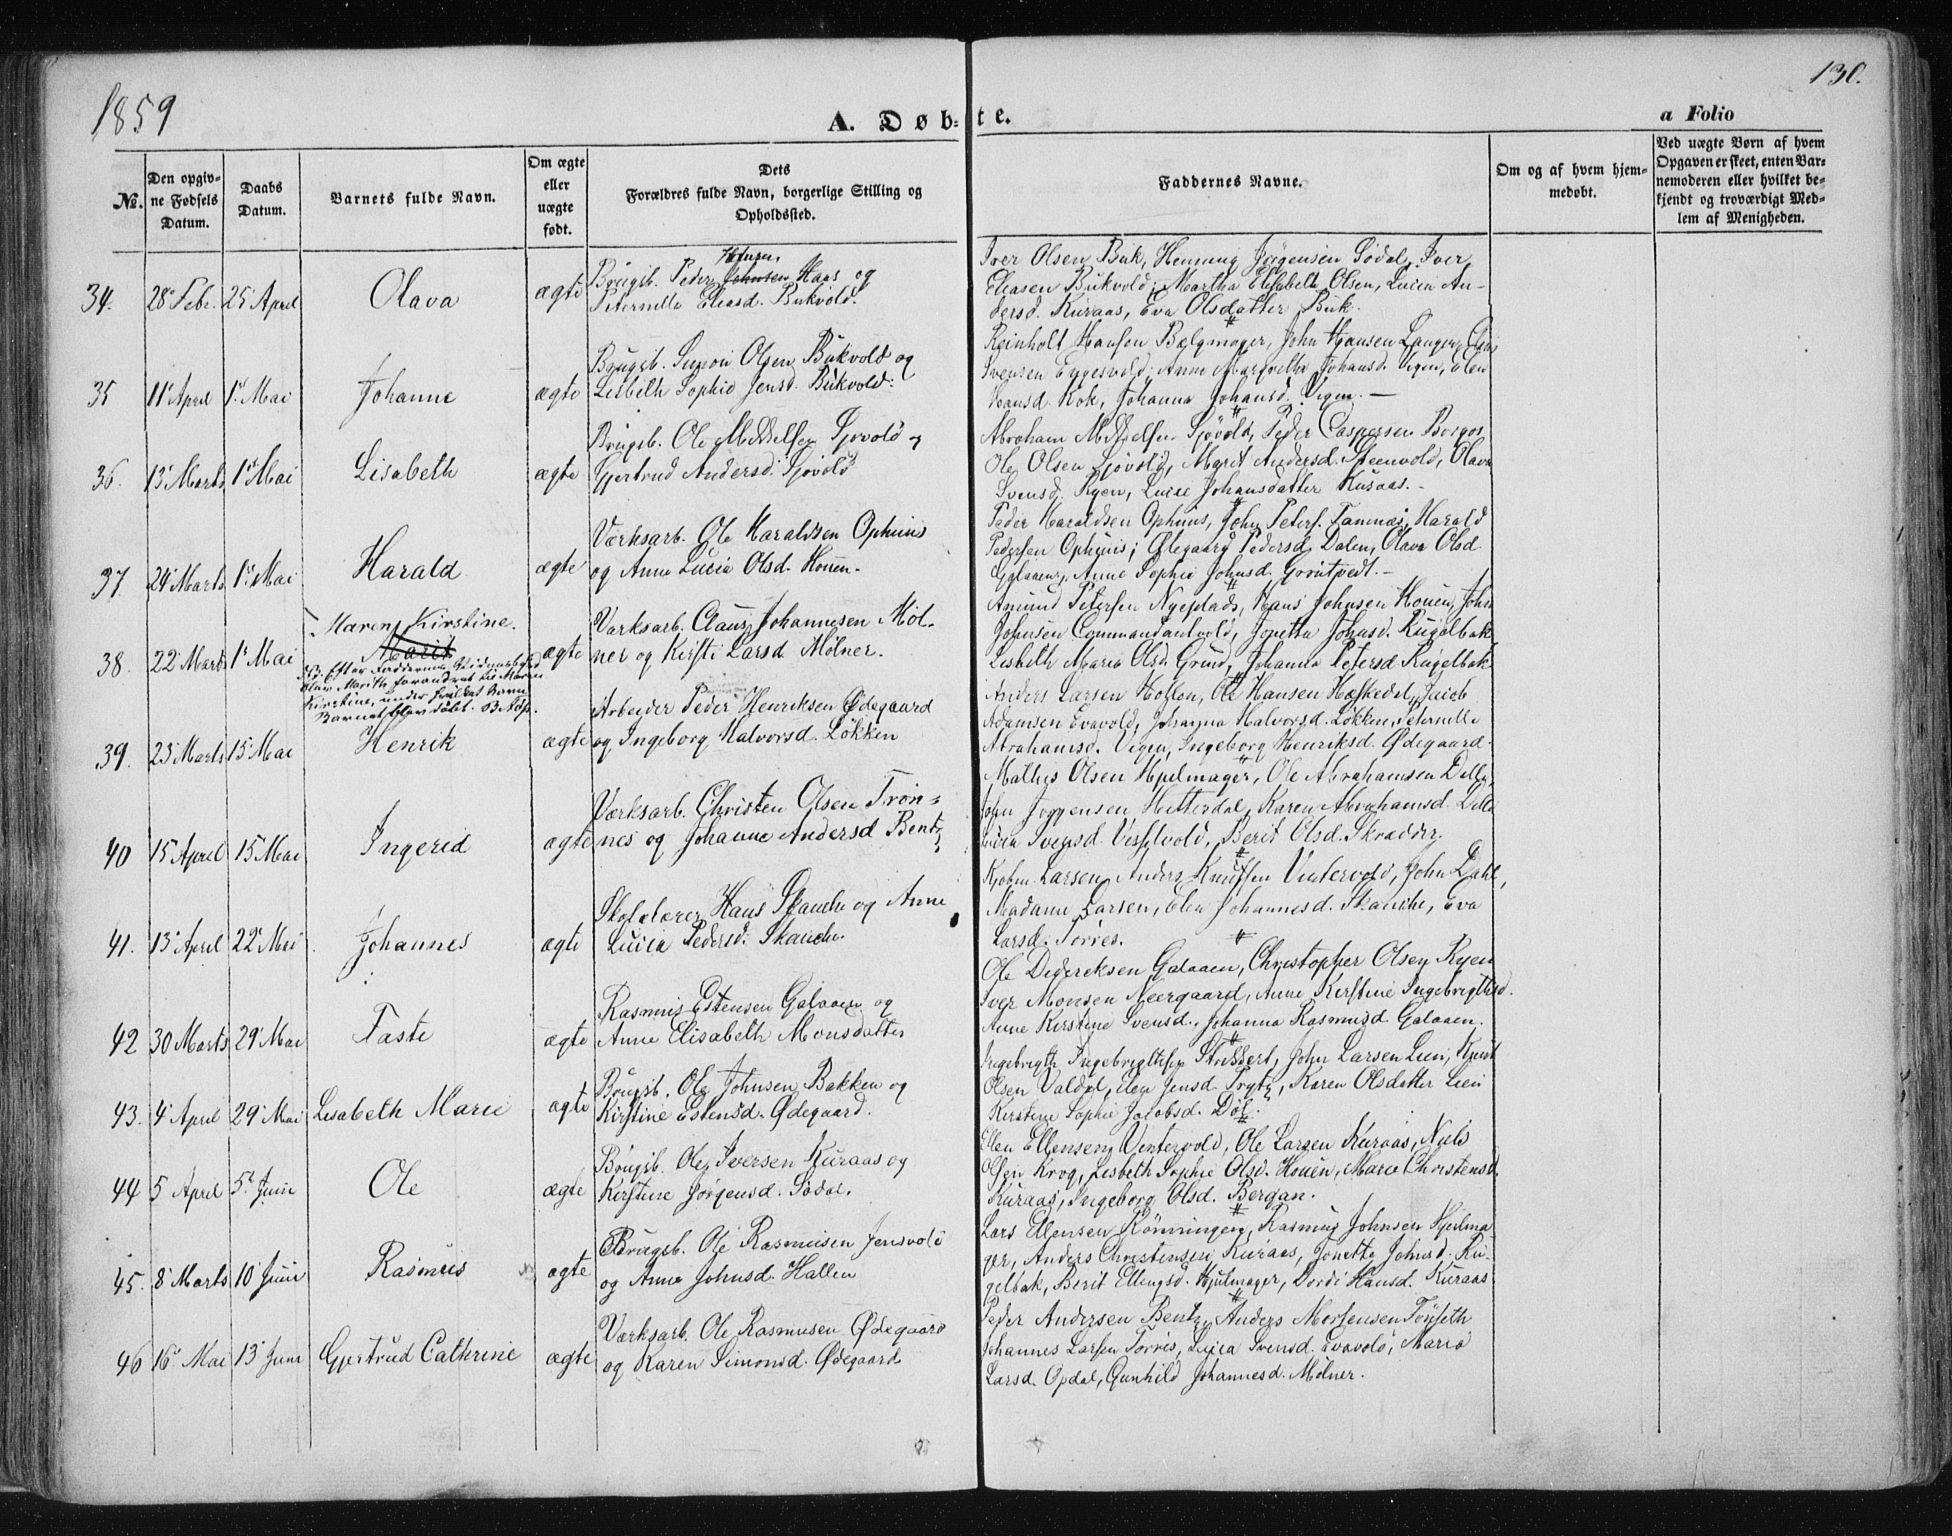 1859
130.
A. Døbte.
a Folio
No.
Den opgivne Fødsels Datum.
Daabs Datum.
Barnets fulde Navn.
Om ægte eller uægte født.
Dets Forældres fulde Navn, borgerlige Stilling og Opholdssted.
Faddernes Navne.
Om og af hvem hjemmedøbt.
Ved uægte Børn af hvem Opgaven er skeet, enten Barnemoderen eller hvilket bekjendt og troværdigt Medlem af Menigheden.
34. 28 Febr. 25 April Olava ægte
Brugsb. Peder Johnsen Haas og
Peternilla Eliasd. Bukvold.
Iver Olsen Buk, Henning Jørgensen Sødal, Iver
Eliasen Bukvold, Martha Elisabeth Olsen, Lucia An-
dersd. Kuraas, Eva Olsdatter Buk.
35 11 April 1 Mai Johanne ægte
Brugsb. Simon Olsen Bukvold og
Lisbeth Sophie Jensd. Bukvold.
Reinholt Hansen Bælgmager, John Hansen Langen,
Svensen Eggesvold, Anne Johansd. Vigen, Elen
Hansd. Kok, Johanna Johansd. Vigen. —
36. 13 Marts 1 Mai Lisabeth ægte
Brugsb. Ole Sjøvold og
Gjertrud Andersd. Sjøvold
Abraham Sjøvold, Peder Caspersen Borgos
Ole Olsen Sjøvold, Marit Andersd. Steenvold, Olava
Svensd. Ryen, Luise Johansdatter Kuraas. -
37 24 Marts 1 Mai Harald ægte
Værksarb. Ole Haraldsen Ophuus
og Anne Lucia Olsd. Houen.
Peder Haraldsen Ophuus, John Peters. Tamnæs, Harald
Pedersen Ophuus, Ødegaard Pedersd. Dalen, Olava Olsd.
Galaaen, Anne Sophie Johnsd. Grøntvedt. -
38. 22 Marts 1 Mai Maren Kirstine. Marit ægte
NB. Efter Faddernes Vidnesbyrd
blev Marith forandret til Maren
Kirstine, under hvilket Navn
Barnet blev døbt.
Værksarb. Claus Johannesen Møl-
ner og Kirsti Larsd. Mølner.
Amund Petersen Nyeplads, Hans Johnsen Houen, John
Johnsen Commandantvold, Jonetta Johnsd. Kugelbak,
Lisbeth Maria Olsd. Grind, Johanna Petersd. Kugelbak
39. 23 Marts 15 Mai Henrik ægte
Arbeider Peder Henriksen Ødegaard
og Ingeborg Halvorsd. Løkken
Anders Larsen Holten, Ole Hansen Hæskedal, Jacob
Adamsen Evavold, Johanna Halvorsd. Løkken, Peternille
Abrahamsd. Vigen, Ingeborg Henriksd. Ødegaard.
40 15 April 15 Mai Ingerid ægte
Værksarb. Christen Olsen Trøn-
nes og Johanne Andersd. Bentz
Mathis Olsen Hjelmager, Ole Abrahamsen Dille,
John Jørgensen Hitterdal, Karen Abrahamsd. Dille
Lucia Svensd. Vestlvold, Berit Olsd. Skrædder.
41. 13 April 22 Mai Johannes ægte
Skolelærer Hans Skanche og Anne
Lucia Pedersd. Skanche.
Kjøbm. Larsen, Anders Knutsen Vintervold, John Dahl,
Madame Larsen, Elen Johannesd. Skanche, Eva
Larsd. Torres.
42 30 Marts 29 Mai Faste ægte
Rasmus Estensen Galaaen og
Anne Elisabeth Monsdatter
Ole Didericksen Galaaen, Christopher Olsen Ryen
Iver Monsen Neergaard, Anne Kirstine Ingebrigtsd.
Anne Kirstine Svensd., Johanna Rasmusd. Galaaen.
43. 4 April 29 Mai Lisabeth Marie ægte
Brugsb. Ole Johnsen Bakken og
Kirstine Estensd. Ødegaard.
Ingebrigth Ingebrigtsen Strickert, John Larsen Lien, Knut
Olsen Valdal, Elen Jensd. Trytz, Karen Olsdatter Lien
Kirstine Sophie Jacobsd. Døl.
44 5 April 5 Juni Ole ægte
Brugsb. Ole Iversen Kuraas og
Kirstine Jørgensd. Sødal.
Ellen Ellensen Vintervold, Ole Larsen Kuraas, Niels
Olsen Krog, Lisbeth Sophie Olsd. Houen, Marie Christensd.
Kuraas, Ingeborg Olsd. Bergan.
45. 8 Marts 10 Juni Rasmus ægte
Brugsb. Ole Rasmusen Jensvold
og Anne Johnsd. Hallen
Lars Ellensen Rønningen, Rasmus Johnsen Hjelma-
ger, Anders Christensen Kuraas, Jonetta Johnsd. Ku-
gelbak, Berit Ellingsd. Hjulmager, Dordi Hansd. Kuraas
46 16 Mai 13 Juni Gjertrud Cathrine ægte
Værksarb. Ole Rasmusen Ødegaard
og Karen Simonsd. Ødegaard
Peder Andersen Bentz, Anders Mortensen Tøyseth
Johannes Larsen Torres, Lucia Svensd. Evavold, Maria
Larsd. Opdal, Gunhild Johannesd. Mølner.